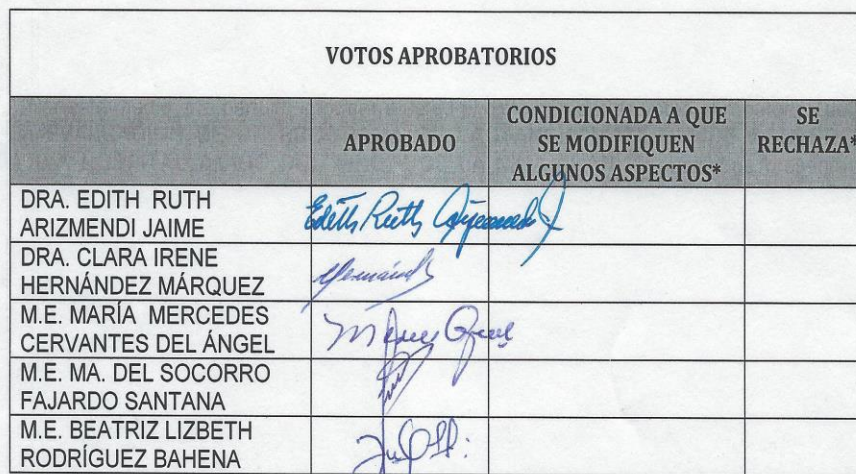 VOTOS APROBATORIOS
APROBADO
CONDICIONADA A QUE
SE MODIFIQUEN
ALGUNOS ASPECTOS*
SE
RECHAZA*
DRA. EDITH RUTH
ARIZMENDI JAIME
Edith Ruth
DRA. CLARA IRENE
HERNÁNDEZ MÁRQUEZ
M.E. MARÍA MERCEDES
CERVANTES DEL ÁNGEL
M.E. MA. DEL SOCORRO
FAJARDO SANTANA
M.E. BEATRIZ LIZBETH
RODRÍGUEZ BAHENA